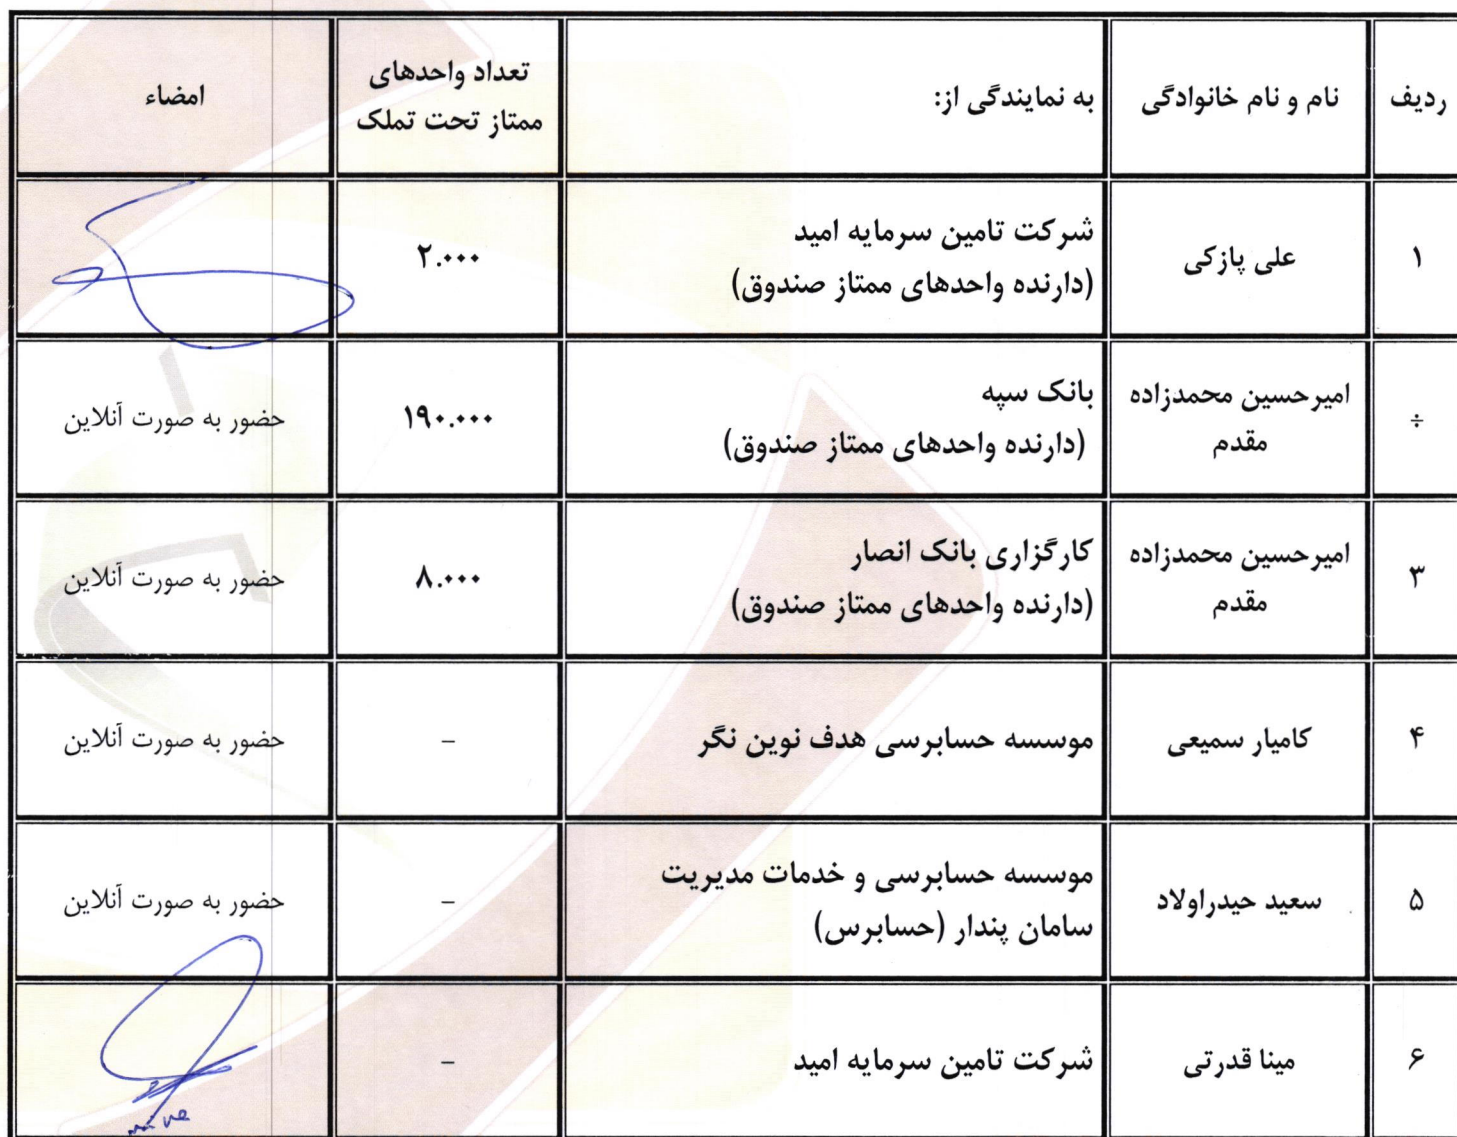 ردیف
نام و نام خانوادگی
به نمایندگی از:
تعداد واحدهای
ممتاز تحت تملک
امضاء
۱
علی پازکی
شرکت تامین سرمایه امید
(دارنده واحدهای ممتاز صندوق)
۲.۰۰۰
÷
امیرحسین محمدزاده
مقدم
بانک سپه
(دارنده واحدهای ممتاز صندوق)
۱۹۰.۰۰۰
حضور به صورت آنلاین
۳
امیرحسین محمدزاده
مقدم
کارگزاری بانک انصار
(دارنده واحدهای ممتاز صندوق)
۸.۰۰۰
حضور به صورت آنلاین
۴
کامیار سمیعی
موسسه حسابرسی هدف نوین نگر
–
حضور به صورت آنلاین
۵
سعید حیدراولاد
موسسه حسابرسی و خدمات مدیریت
سامان پندار (حسابرس)
–
حضور به صورت آنلاین
۶
مینا قدرتی
شرکت تامین سرمایه امید
–